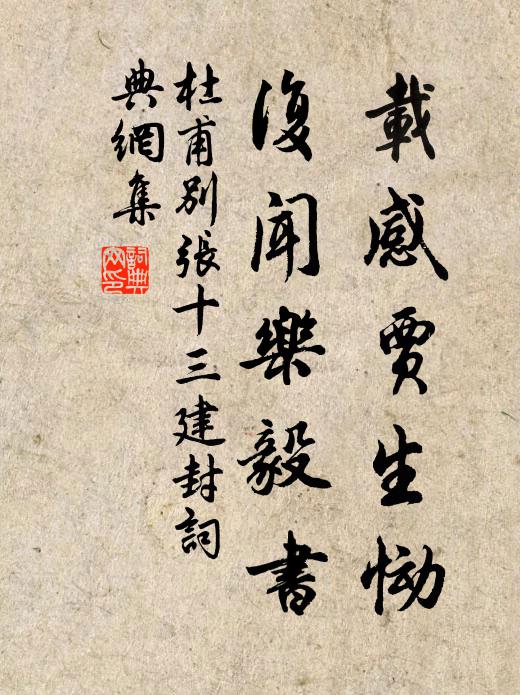 載感賈生慟
復聞樂毅書
杜甫別張十三建封詞
典網集
詞典
网印